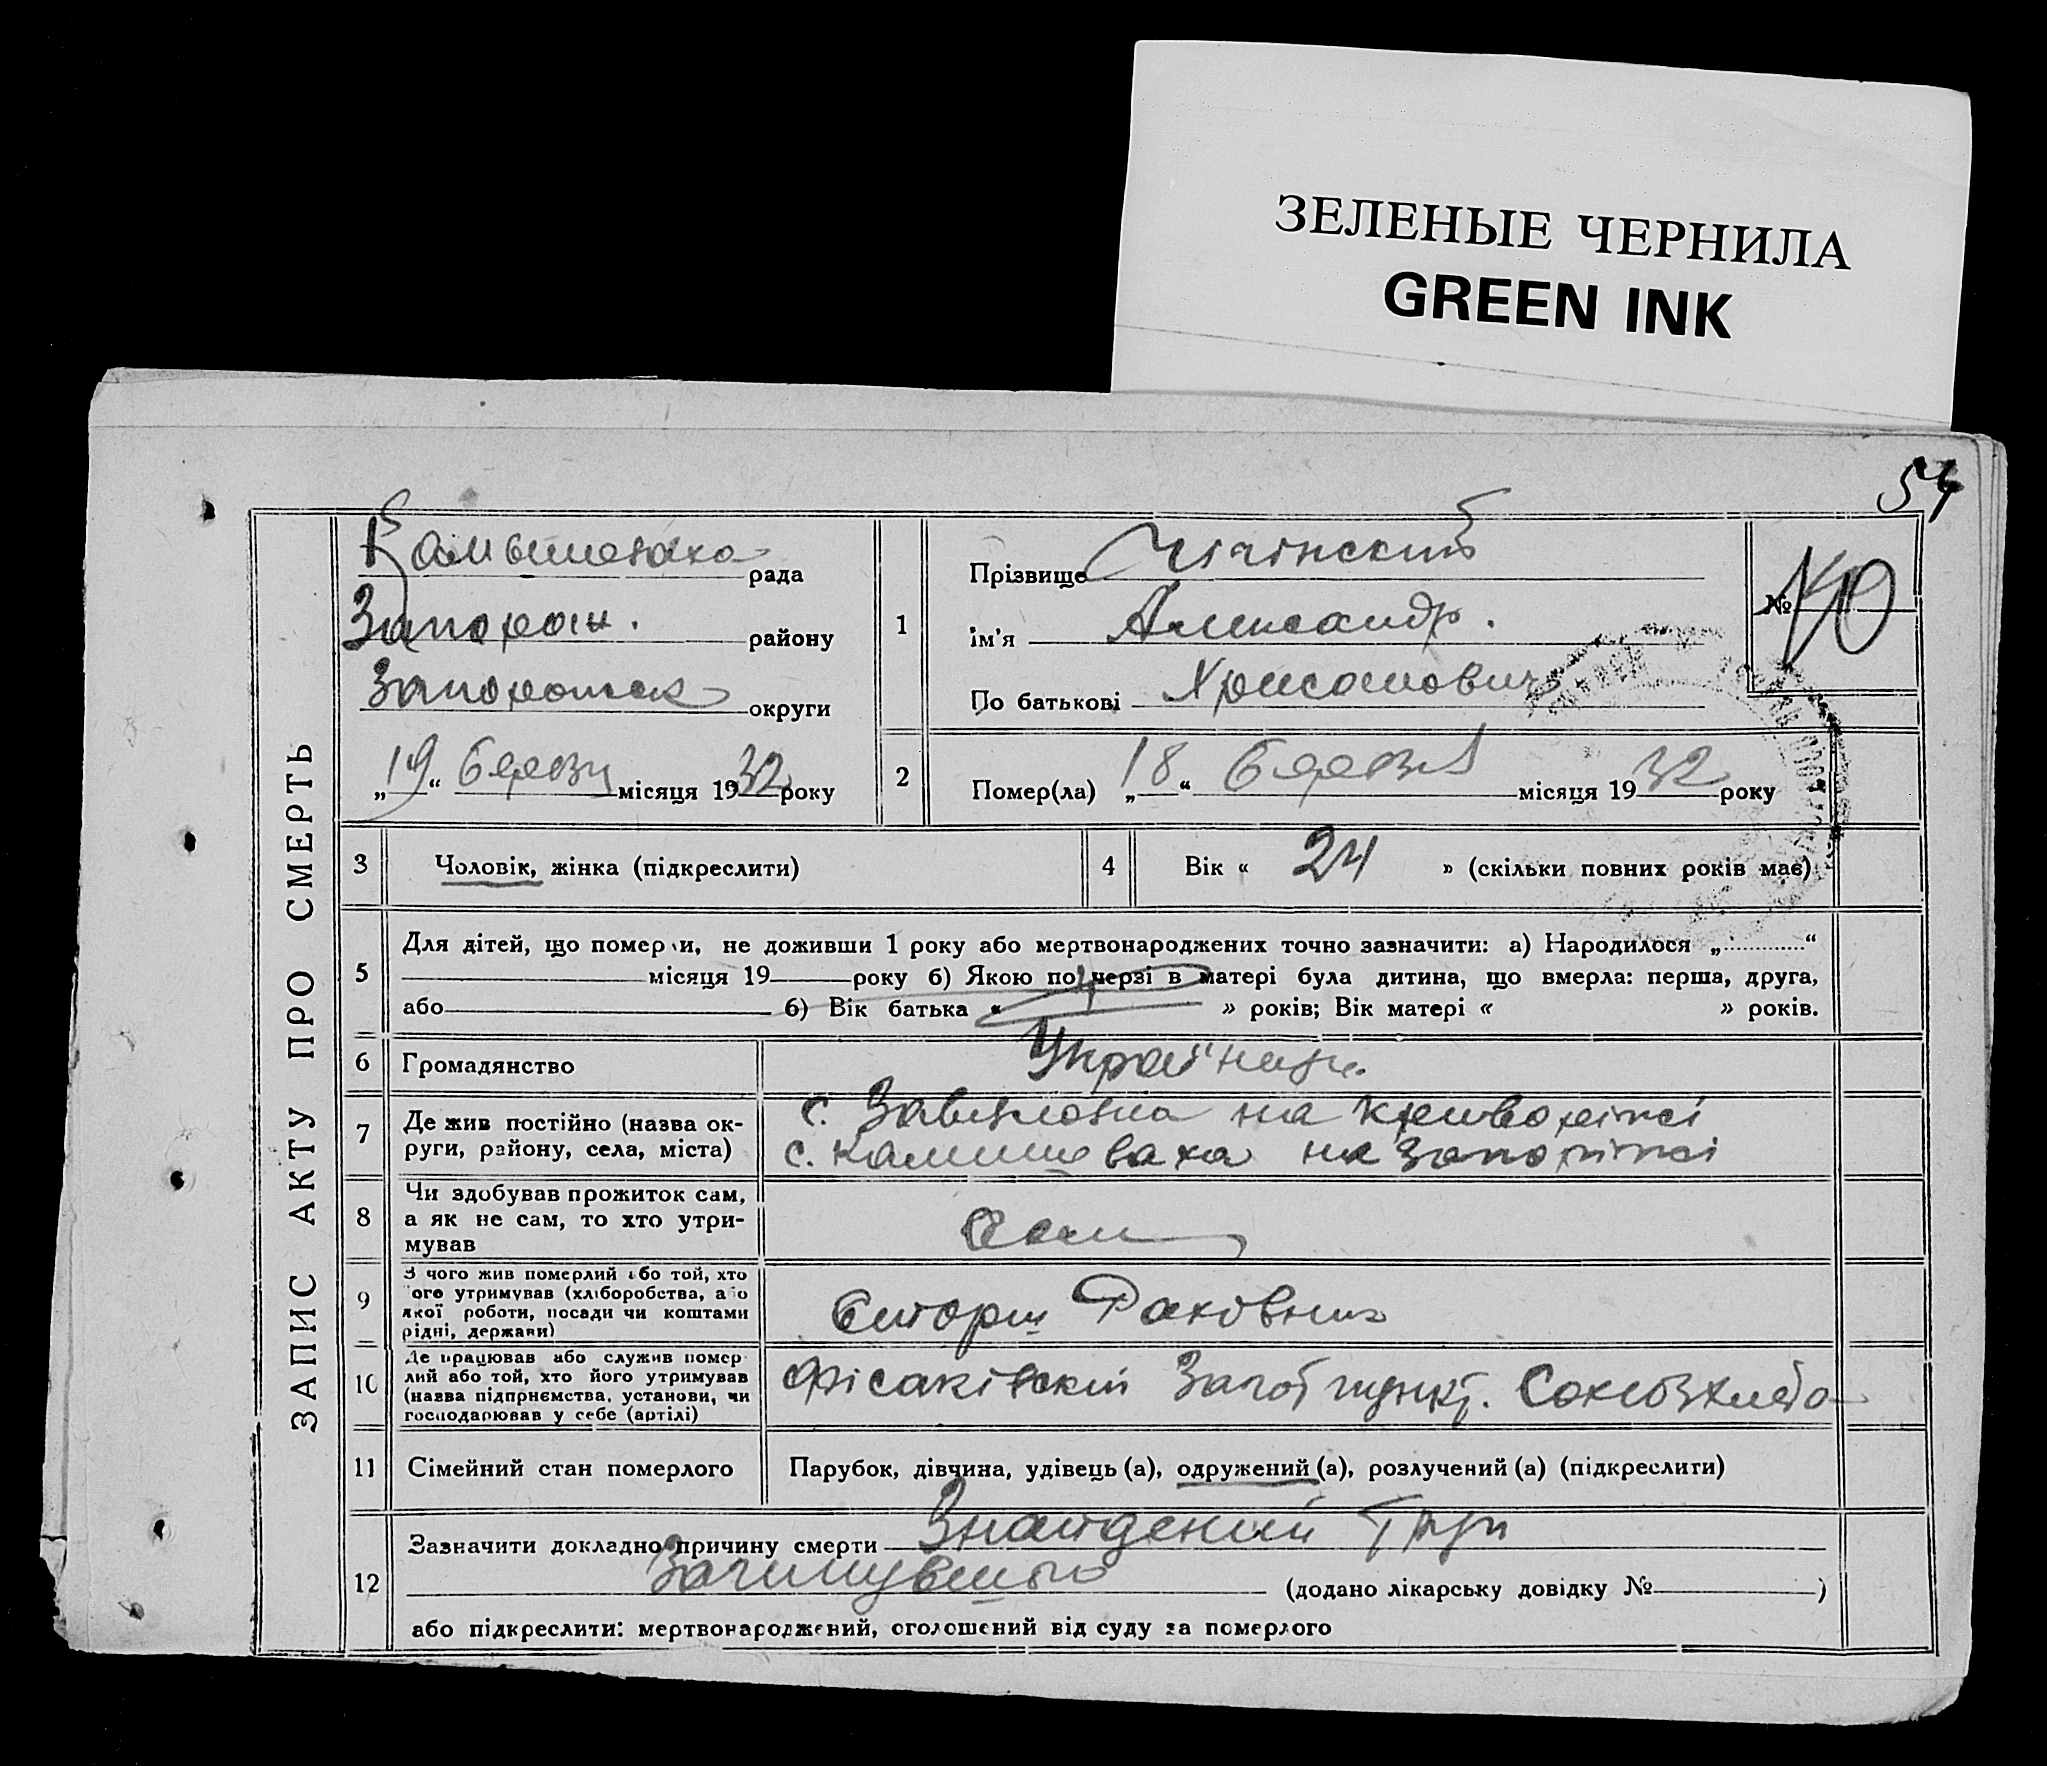 ЗЕЛЕНЫЕ ЧЕРНИЛА
GREEN INK
54
ЗАПИС АКТУ ПРО СМЕРТЬ
Камышеваха рада
району
округи
„19“ березня місяця 1932 року
1
Прізвище
ім'я Александр.
По батькові Хрисанович
№ 40
2
Помер(ла) „18“ березня місяця 1932 року
3
Чоловік, жінка (підкреслити)
4
Вік « 24 » (скільки повних років має)
5
Для дітей, що померли, не доживши 1 року або мертвонароджених точно зазначити: а) Народилося „ “
місяця 19 року б) Якою по черзі в матері була дитина, що вмерла: перша, друга,
або б) Вік батька « » років; Вік матері « » років.
6
Громадянство
7
Де жив постійно (назва ок-
руги, району, села, міста)
с. на
с. Камишеваха на
8
Чи здобував прожиток сам,
а як не сам, то хто утри-
мував
Сам
9
З чого жив померлий або той, хто
його утримував (хліборобства, або
якої роботи, посади чи коштами
рідні, держави)
10
Де працював або служив помер
лий або той, хто його утримував
(назва підприємства, установи, чи
господарював у себе (артілі)
Союзхліба
11
Сімейний стан померлого
Парубок, дівчина, удівець (а), одружений (а), розлучений (а) (підкреслити)
12
Зазначити докладно причину смерти Знайдений Труп
(додано лікарську довідку № )
або підкреслити: мертвонароджений, оголошений від суду за померлого